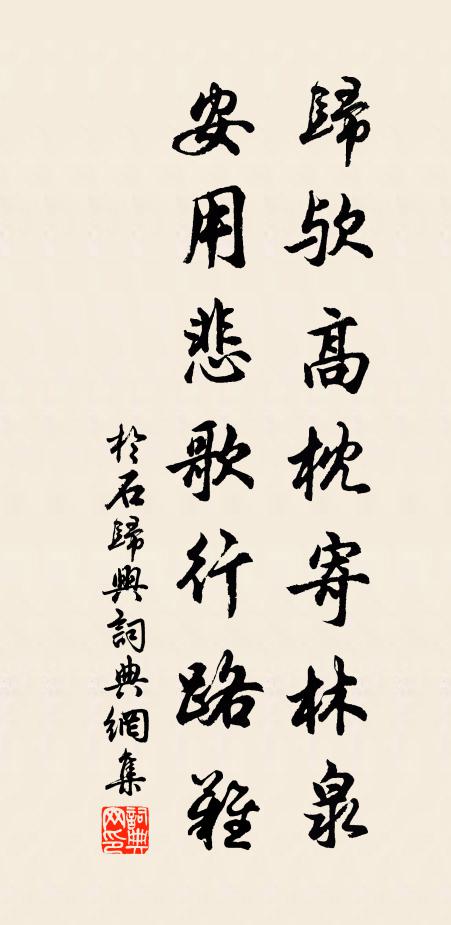 歸欤高枕寄林泉
安用悲歌行路難
於石歸興詞典網集
詞典网印